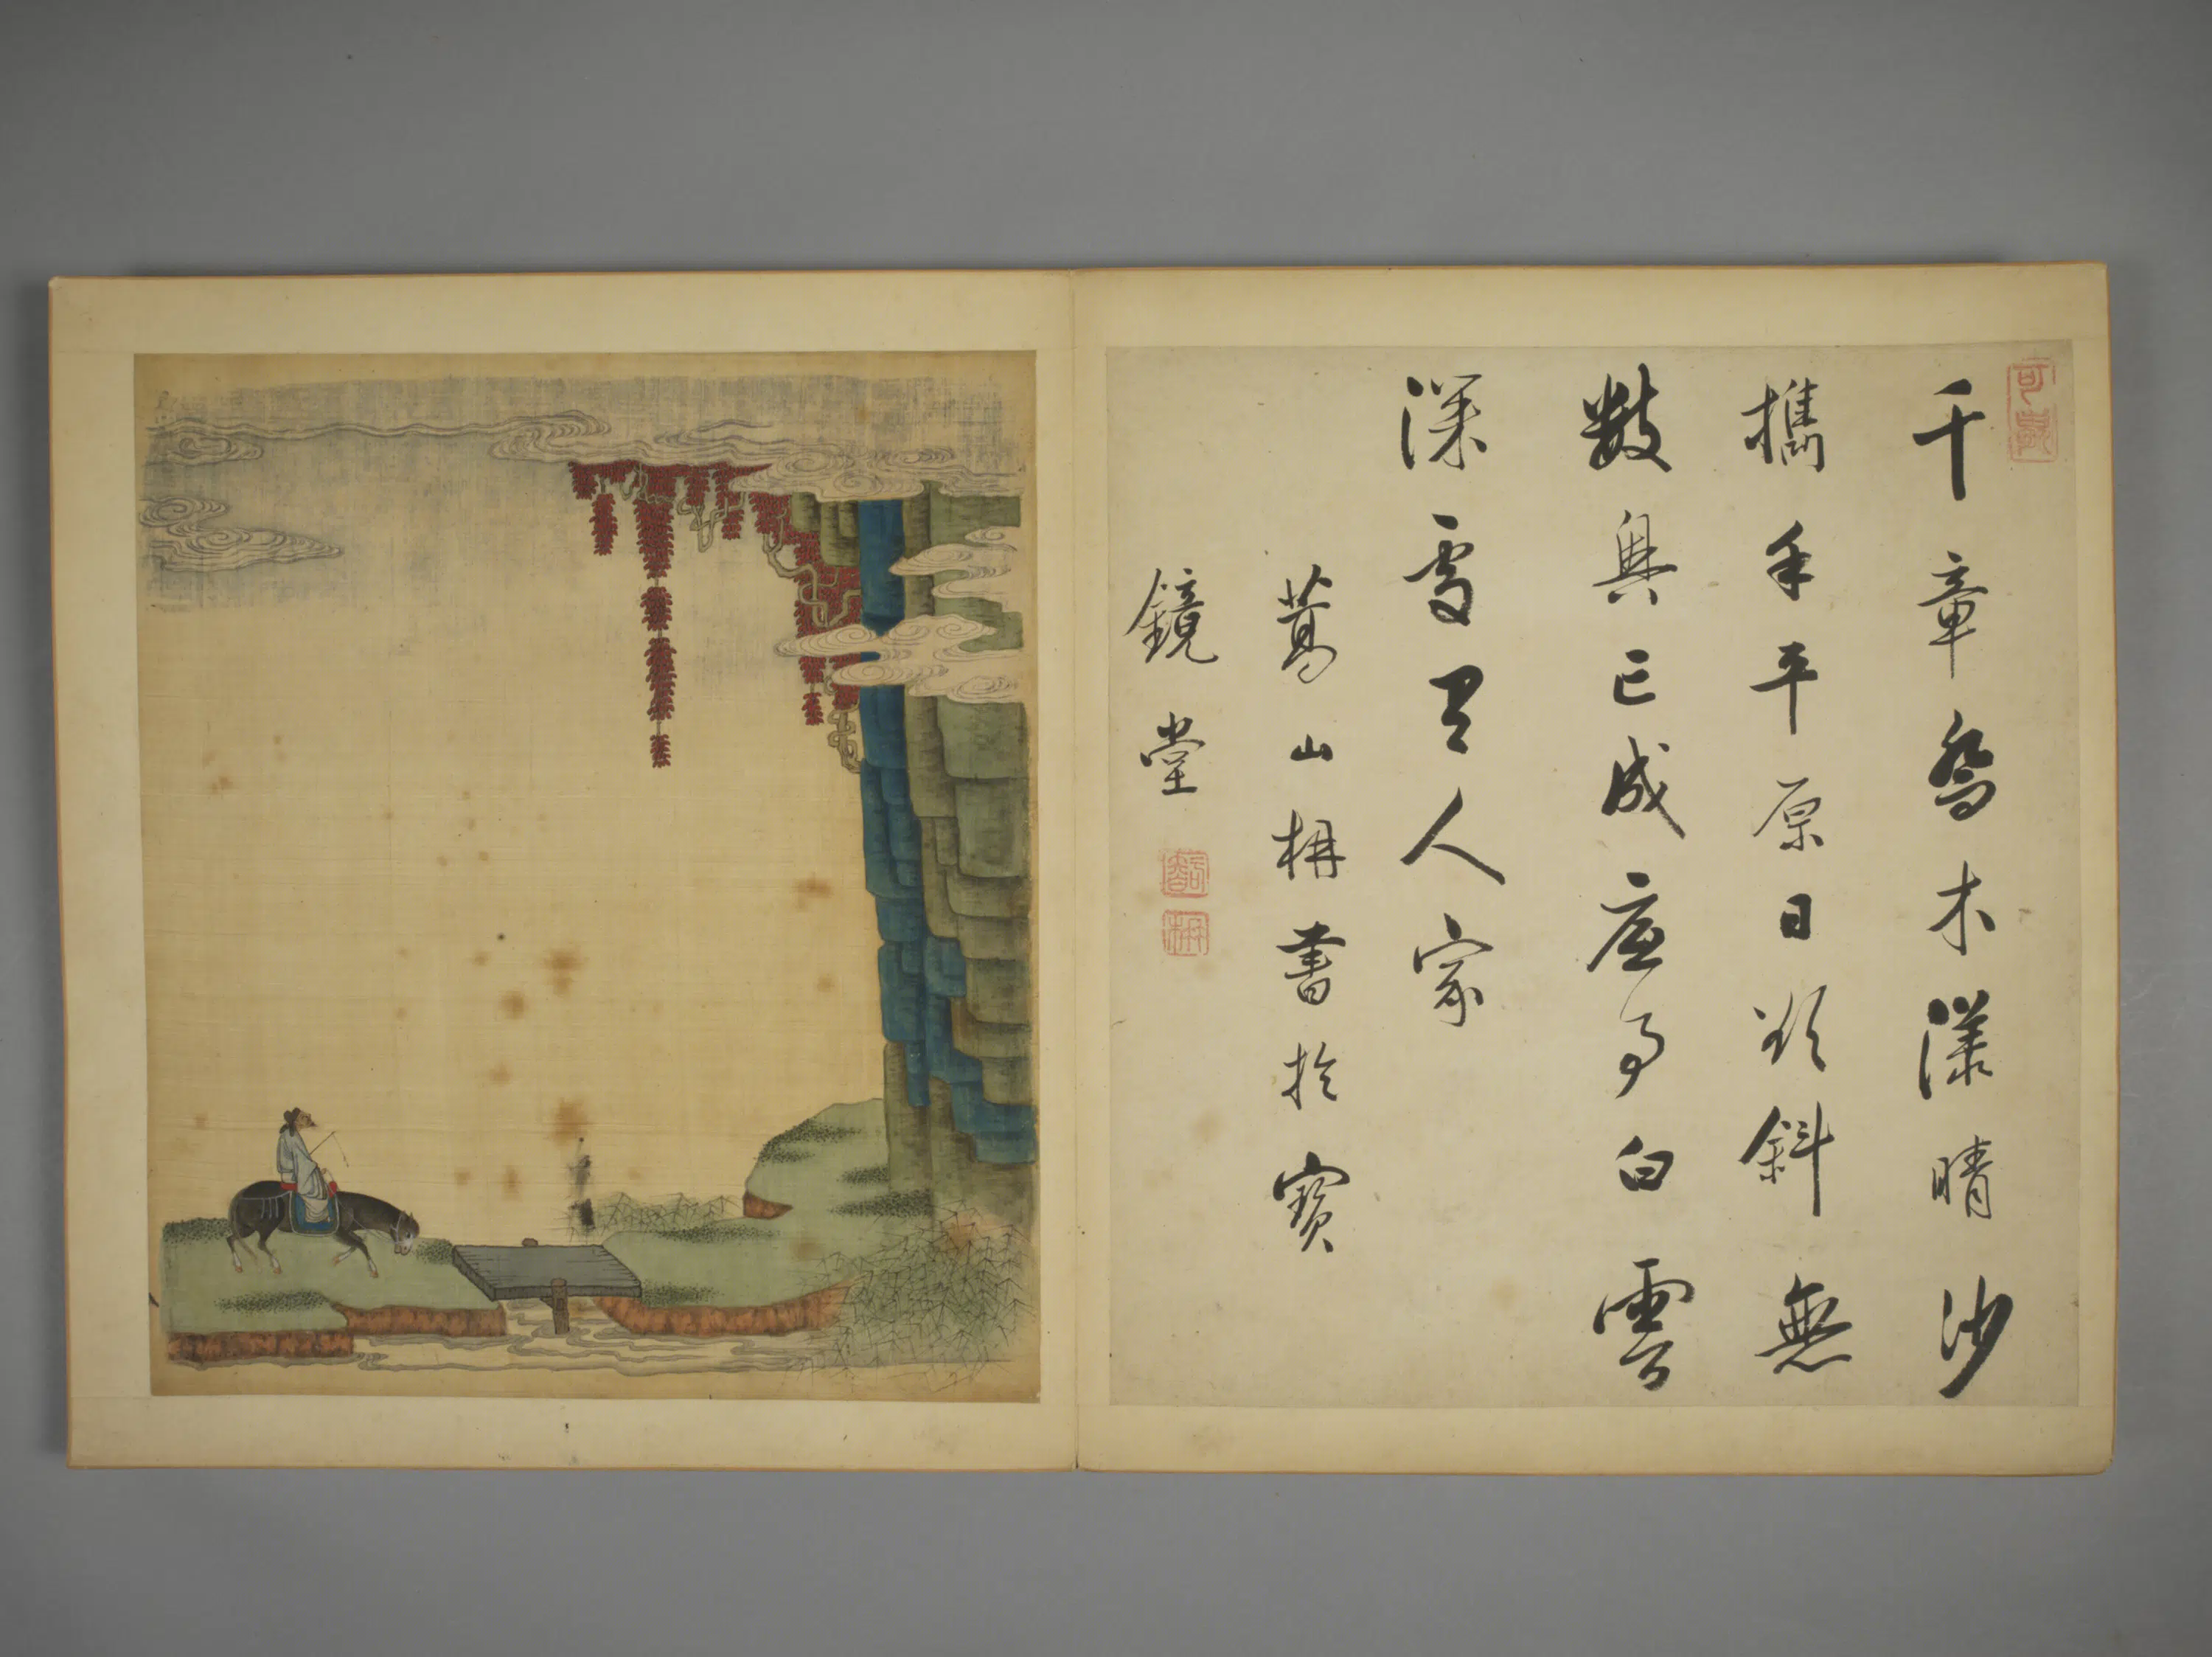 千章喬木漾晴沙
攜手平原日欲斜無
數興亡成底事白雲
深處人家
葛山枏書於寶
鏡堂
枏